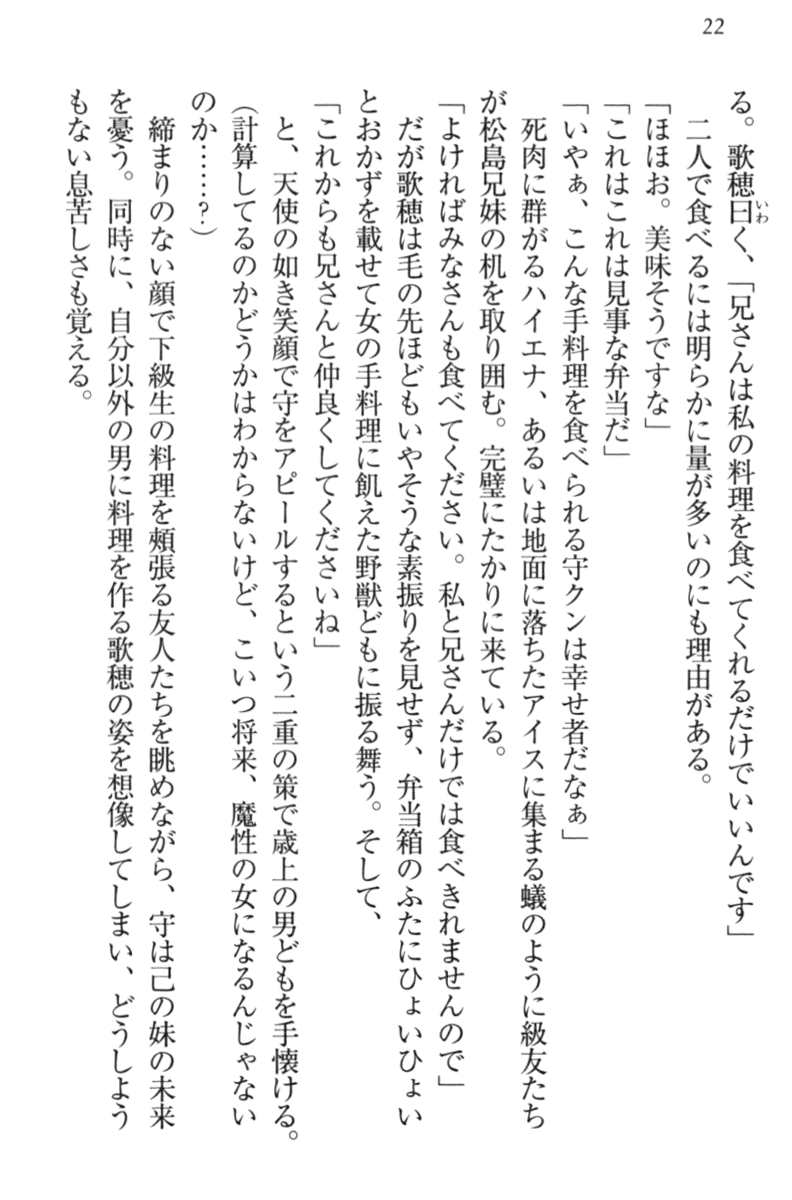 22
る。歌穂曰く、「兄さんは私の料理を食べてくれるだけでいいんです」
いわ
二人で食べるには明らかに量が多いのにも理由がある。
「ほほお。美味そうですな」
「これはこれは見事な弁当だ」
「いやぁ、こんな手料理を食べられる守クンは幸せ者だなぁ」
死肉に群がるハイエナ、あるいは地面に落ちたアイスに集まる蟻のように級友たち
が松島兄妹の机を取り囲む。完璧にたかりに来ている。
「よければみなさんも食べてください。私と兄さんだけでは食べきれませんので」
だが歌穂は毛の先ほどもいやそうな素振りを見せず、弁当箱のふたにひょいひょい
とおかずを載せて女の手料理に飢えた野獣どもに振る舞う。そして、
「これからも兄さんと仲良くしてくださいね」
と、天使の如き笑顔で守をアピールするという二重の策で歳上の男どもを手懐ける。
(計算してるのかどうかはわからないけど、こいつ将来、魔性の女になるんじゃない
のか……？)
締まりのない顔で下級生の料理を頰張る友人たちを眺めながら、守は己の妹の未来
を憂う。同時に、自分以外の男に料理を作る歌穂の姿を想像してしまい、どうしよう
もない息苦しさも覚える。